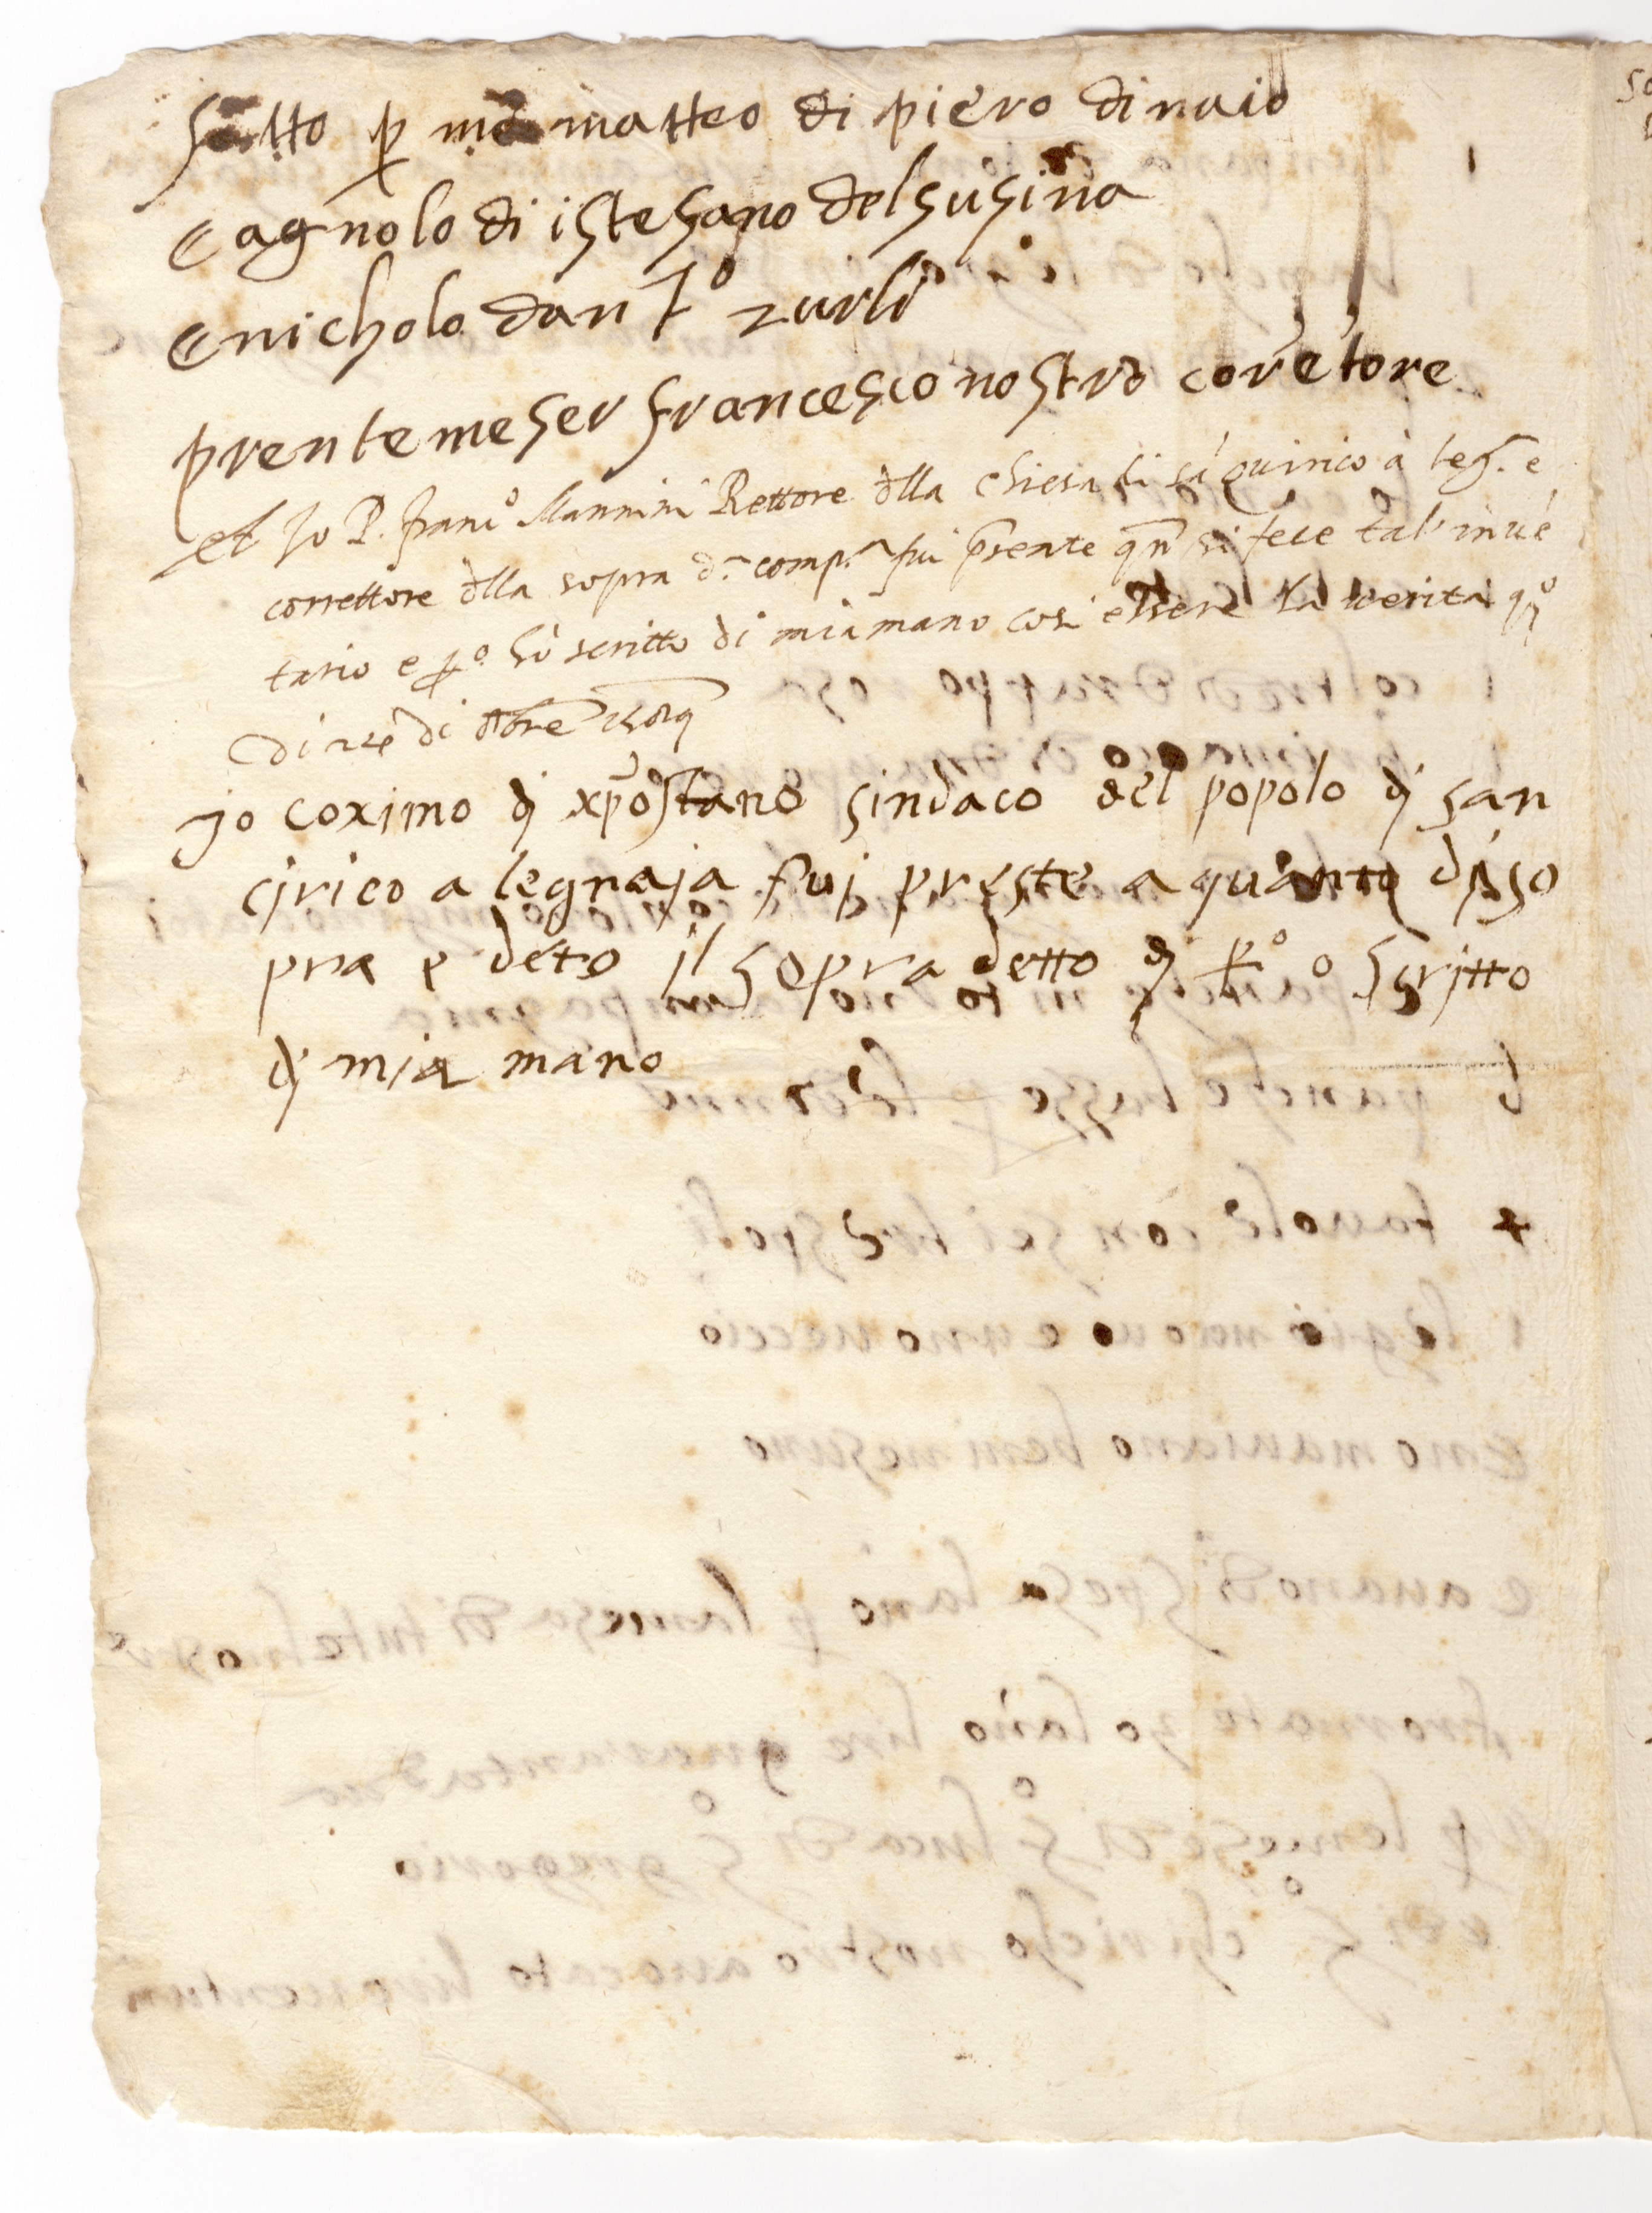 fatto p me matteo di piero dinaio
e agnolo di istefano del susina
e nicholo dant.º zurli
prente meser francesco nostro coretore
et Jo P. franc.º Mannini Rettore dlla chiesa di sã quirico à leg.ª e
correttore dlla sopra d.ª comp.ª fui p̃sente qñ si fece tal' invẽ
tario e p.º hò scritto di mia mano cosi essere la verità q.º
di di 8bre
Jo coximo di xp̃ofano sindaco del popolo di san
cirico a legnaja fuj preste a quanto diso
pra e deto il sopra detto di p.º o scritto
di mia mano